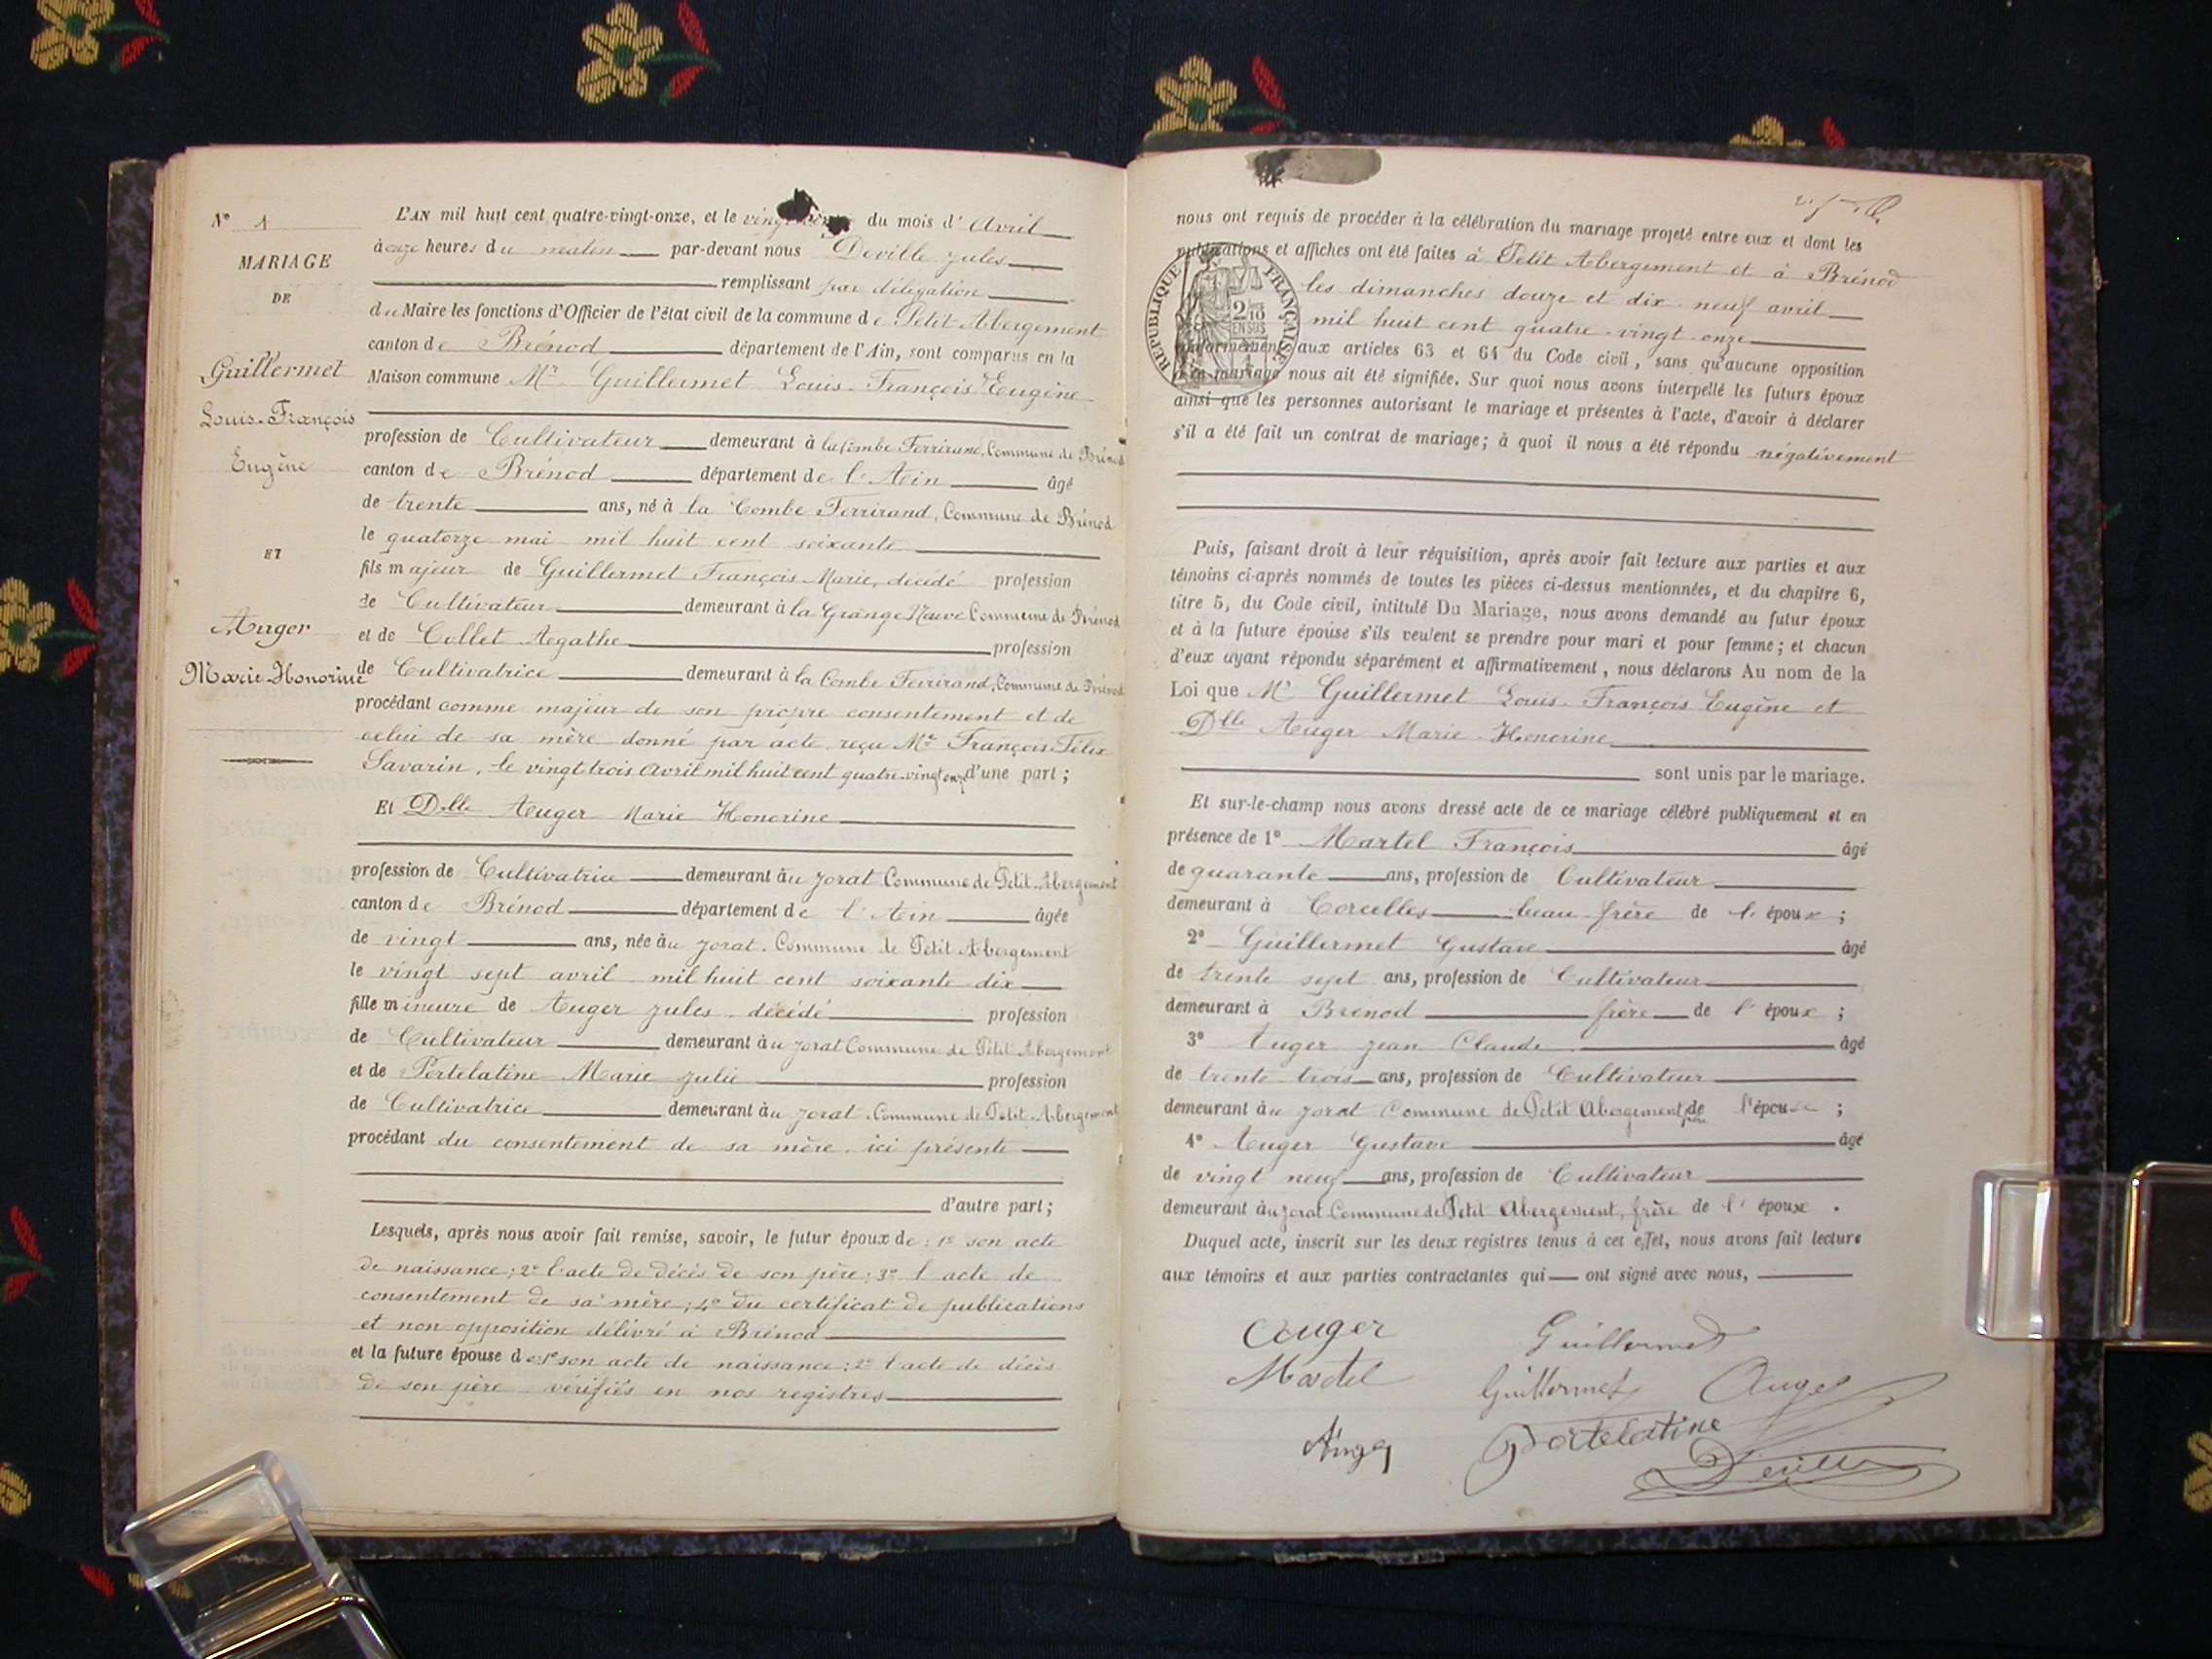 N° 1
MARIAGE
DE
Guillermet
Louis-François
Eugène
ET
Auger
Marie-Honorine
L'AN mil huit cent quatre-vingt-onze, et le du mois d'Avril
à onze heures du matin par-devant nous Deville Jules
remplissant par délégation
du Maire les fonctions d'Officier de l'état civil de la commune de Petit Abergement
canton de Brénod département de l'Ain, sont comparus en la
Maison commune Mr Guillermet Louis-François Eugène
profession de Cultivateur demeurant à la Combe Ferrirand, Commune de Brénod
canton de Brénod département de l'Ain âgé
de trente ans, né à la Combe Ferrirand, Commune de Brénod
le quatorze mai mil huit cent soixante
fils majeur de Guillermet François Marie, décédé profession
de Cultivateur demeurant à la Grange Commune de Brénod
et de Collet Agathe profession
de Cultivatrice demeurant à la Combe Ferrirand, Commune de Brénod
procédant comme majeur de son propre consentement et de
celui de sa mère donné par acte reçu Me François Félix
Savarin, le vingt trois Avril mil huit cent quatre-vingt onze d'une part;
Et Dlle Auger Marie Honorine
profession de Cultivatrice demeurant au Jorat Commune de Petit-Abergement
canton de Brénod département de l'Ain âgée
de vingt ans, née au Jorat. Commune de Petit Abergement
le vingt sept avril mil huit cent soixante dix
fille mineure de Auger Jules. décédé profession
de Cultivateur demeurant au Jorat Commune de Petit Abergement
et de Portelatine Marie Julie profession
de Cultivatrice demeurant au Jorat. Commune de Petit-Abergement
procédant du consentement de sa mère, ici présente
d'autre part;
Lesquels, après nous avoir fait remise, savoir, le futur époux de: 1° son acte
de naissance; 2° l'acte de décès de son père; 3° l'acte de
consentement de sa mère; 4° du certificat de publications
et non opposition délivré à Brénod
et la future épouse de: 1° son acte de naissance; 2° l'acte de décès
de son père vérifiés en nos registres
nous ont requis de procéder à la célébration du mariage projeté entre eux et dont les
publications et affiches ont été faites à Petit Abergement et à Brénod
les dimanches douze et dix-neuf avril
mil huit cent quatre-vingt-onze
RÉPUBLIQUE FRANÇAISE
2/10
EN SUS
conformément aux articles 63 et 64 du Code civil, sans qu'aucune opposition
à ce mariage nous ait été signifiée. Sur quoi nous avons interpellé les futurs époux
ainsi que les personnes autorisant le mariage et présentes à l'acte, d'avoir à déclarer
s'il a été fait un contrat de mariage; à quoi il nous a été répondu négativement
Puis, faisant droit à leur réquisition, après avoir fait lecture aux parties et aux
témoins ci-après nommés de toutes les pièces ci-dessus mentionnées, et du chapitre 6,
titre 5, du Code civil, intitulé Du Mariage, nous avons demandé au futur époux
et à la future épouse s'ils veulent se prendre pour mari et pour femme; et chacun
d'eux ayant répondu séparément et affirmativement, nous déclarons Au nom de la
Loi que Mr Guillermet Louis-François Eugène et
Dlle Auger Marie-Honorine
sont unis par le mariage.
Et sur-le-champ nous avons dressé acte de ce mariage célébré publiquement et en
présence de 1° Martel François âgé
de quarante ans, profession de Cultivateur
demeurant à Corcelles beau-frère de l'époux;
2° Guillermet Gustave âgé
de trente sept ans, profession de Cultivateur
demeurant à Brénod frère de l'époux;
3° Auger Jean Claude âgé
de trente-trois ans, profession de Cultivateur
demeurant au Jorat Commune de Petit Abergement, frère de l'épouse;
4° Auger Gustave âgé
de vingt neuf ans, profession de Cultivateur
demeurant au Jorat Commune de Petit Abergement, frère de l'épouse.
Duquel acte, inscrit sur les deux registres tenus à cet effet, nous avons fait lecture
aux témoins et aux parties contractantes qui ont signé avec nous,
Auger Guillermet
Martel Guillermet Auger
Auger Portelatine
Deville